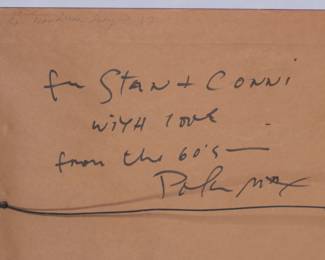 for Stan + Conni
with love
from the 60's—
Peter Max